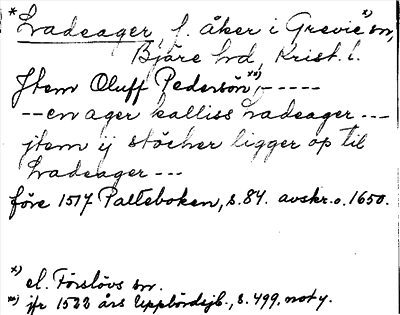 *Hvadeager, f. åker i Grevie x) sn,
Bjäre hd, Krist. l.
Jtem Oluff Pedersön xx), -----
-- en ager kalliss hvadeager ---
jtem ij stöcher ligger op til
hvadeager ---
före 1517 Palteboken, s. 84. avskr. o. 1650.
x) el. Förslövs sn.
xx) jfr 1522 års Uppbördsjb., s. 499, not y.